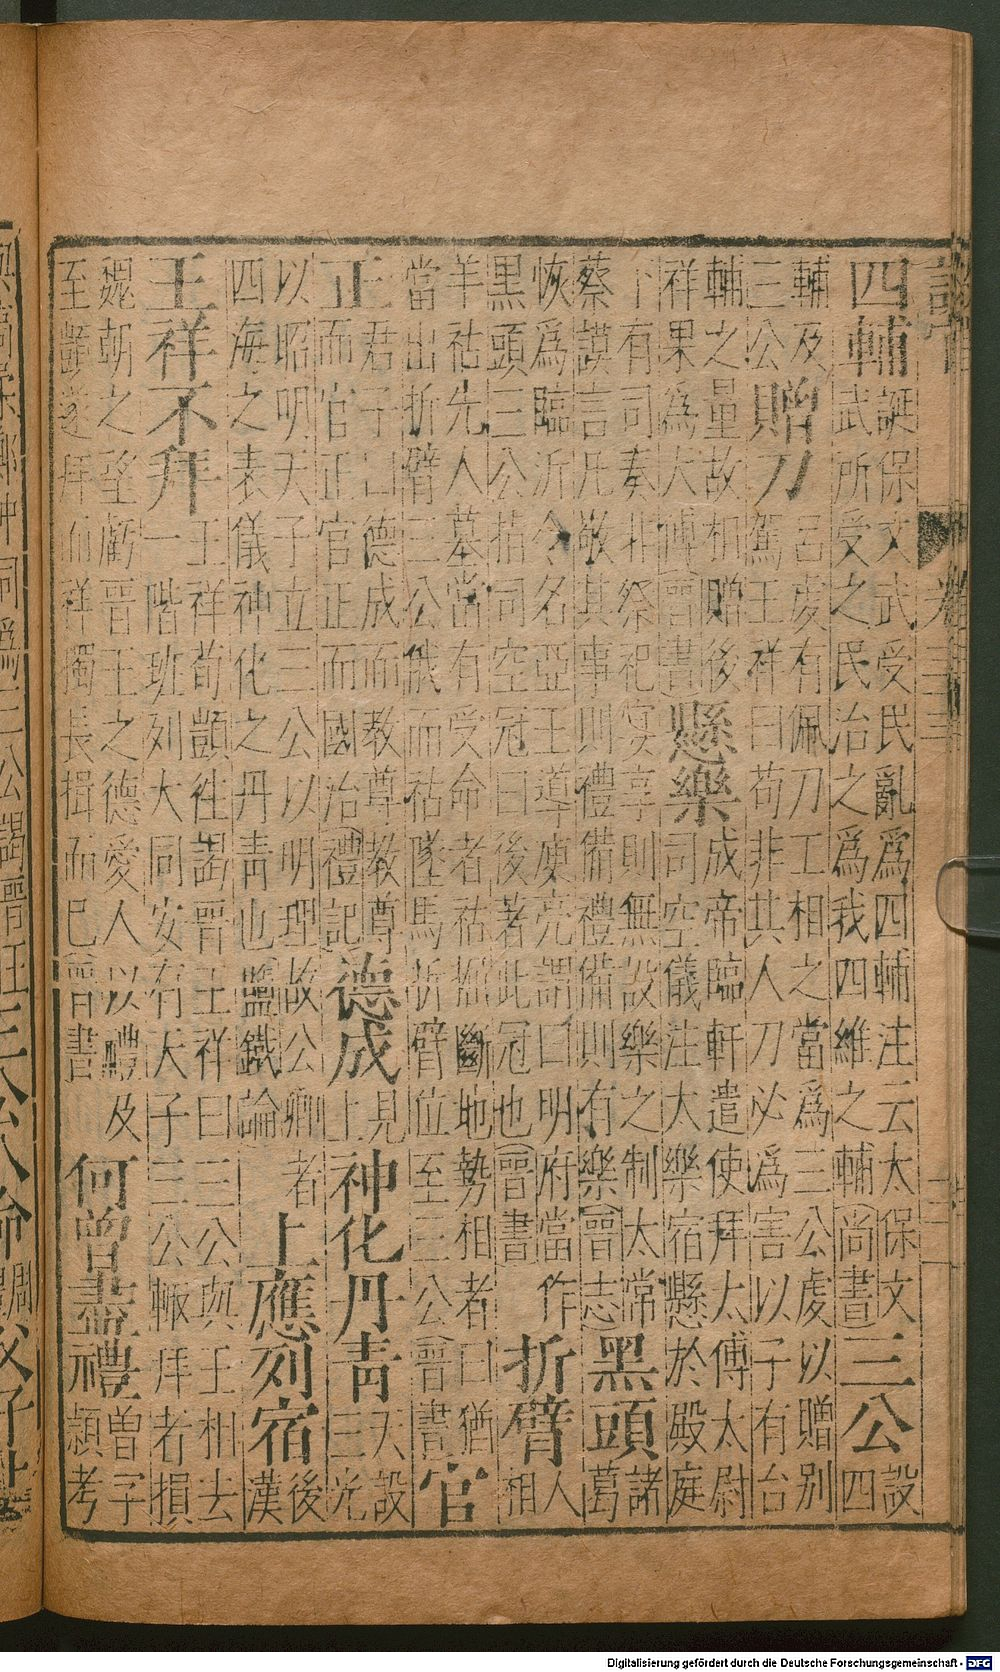 四輔
誕保文武受民亂爲四輔注云太保文
武所受之民治之爲我四維之輔尚書
三公
設
四
輔及
三公
贈刀
呂虔有佩刀工相之當爲三公虔以贈別
駕王祥曰苟非其人刀必爲害以子有台
輔之量故相贈後
祥果爲大傅晉書
懸樂
成帝臨軒遣使拜太傅太尉
司空儀注太樂宿懸於殿庭
下有司奏非祭祀宴享則無設樂之制太常
蔡謨言凡敬其事則禮備禮備則有樂晉志
黑頭
諸
葛
恢爲臨沂令名亞王導庾亮謂曰明府當作
黑頭三公拍司空冠曰後著此冠也晉書
折臂
人
相
羊祜先人墓當有受命者祜掘斷地勢相者曰猶
當出折臂三公俄而祜墜馬折臂位至三公晉書
官
正
君子曰德成而教尊教尊
而官正官正而國治禮記
德成
見
上
神化丹青
天設
三光
以昭明天子立三公以明理故公卿者
四海之表儀神化之丹青也鹽鐵論
上應列宿
後
漢
王祥不拜
王祥荀顗往謁晉王祥曰三公與王相去
一階班列大同安有天子三公輒拜者損
魏朝之望虧晉王之德愛人以禮及
至顗遂拜而祥獨長揖而已晉書
何曾盡禮
曾子
潁考
Digitalisierung gefördert durch die Deutsche Forschungsgemeinschaft - DFG